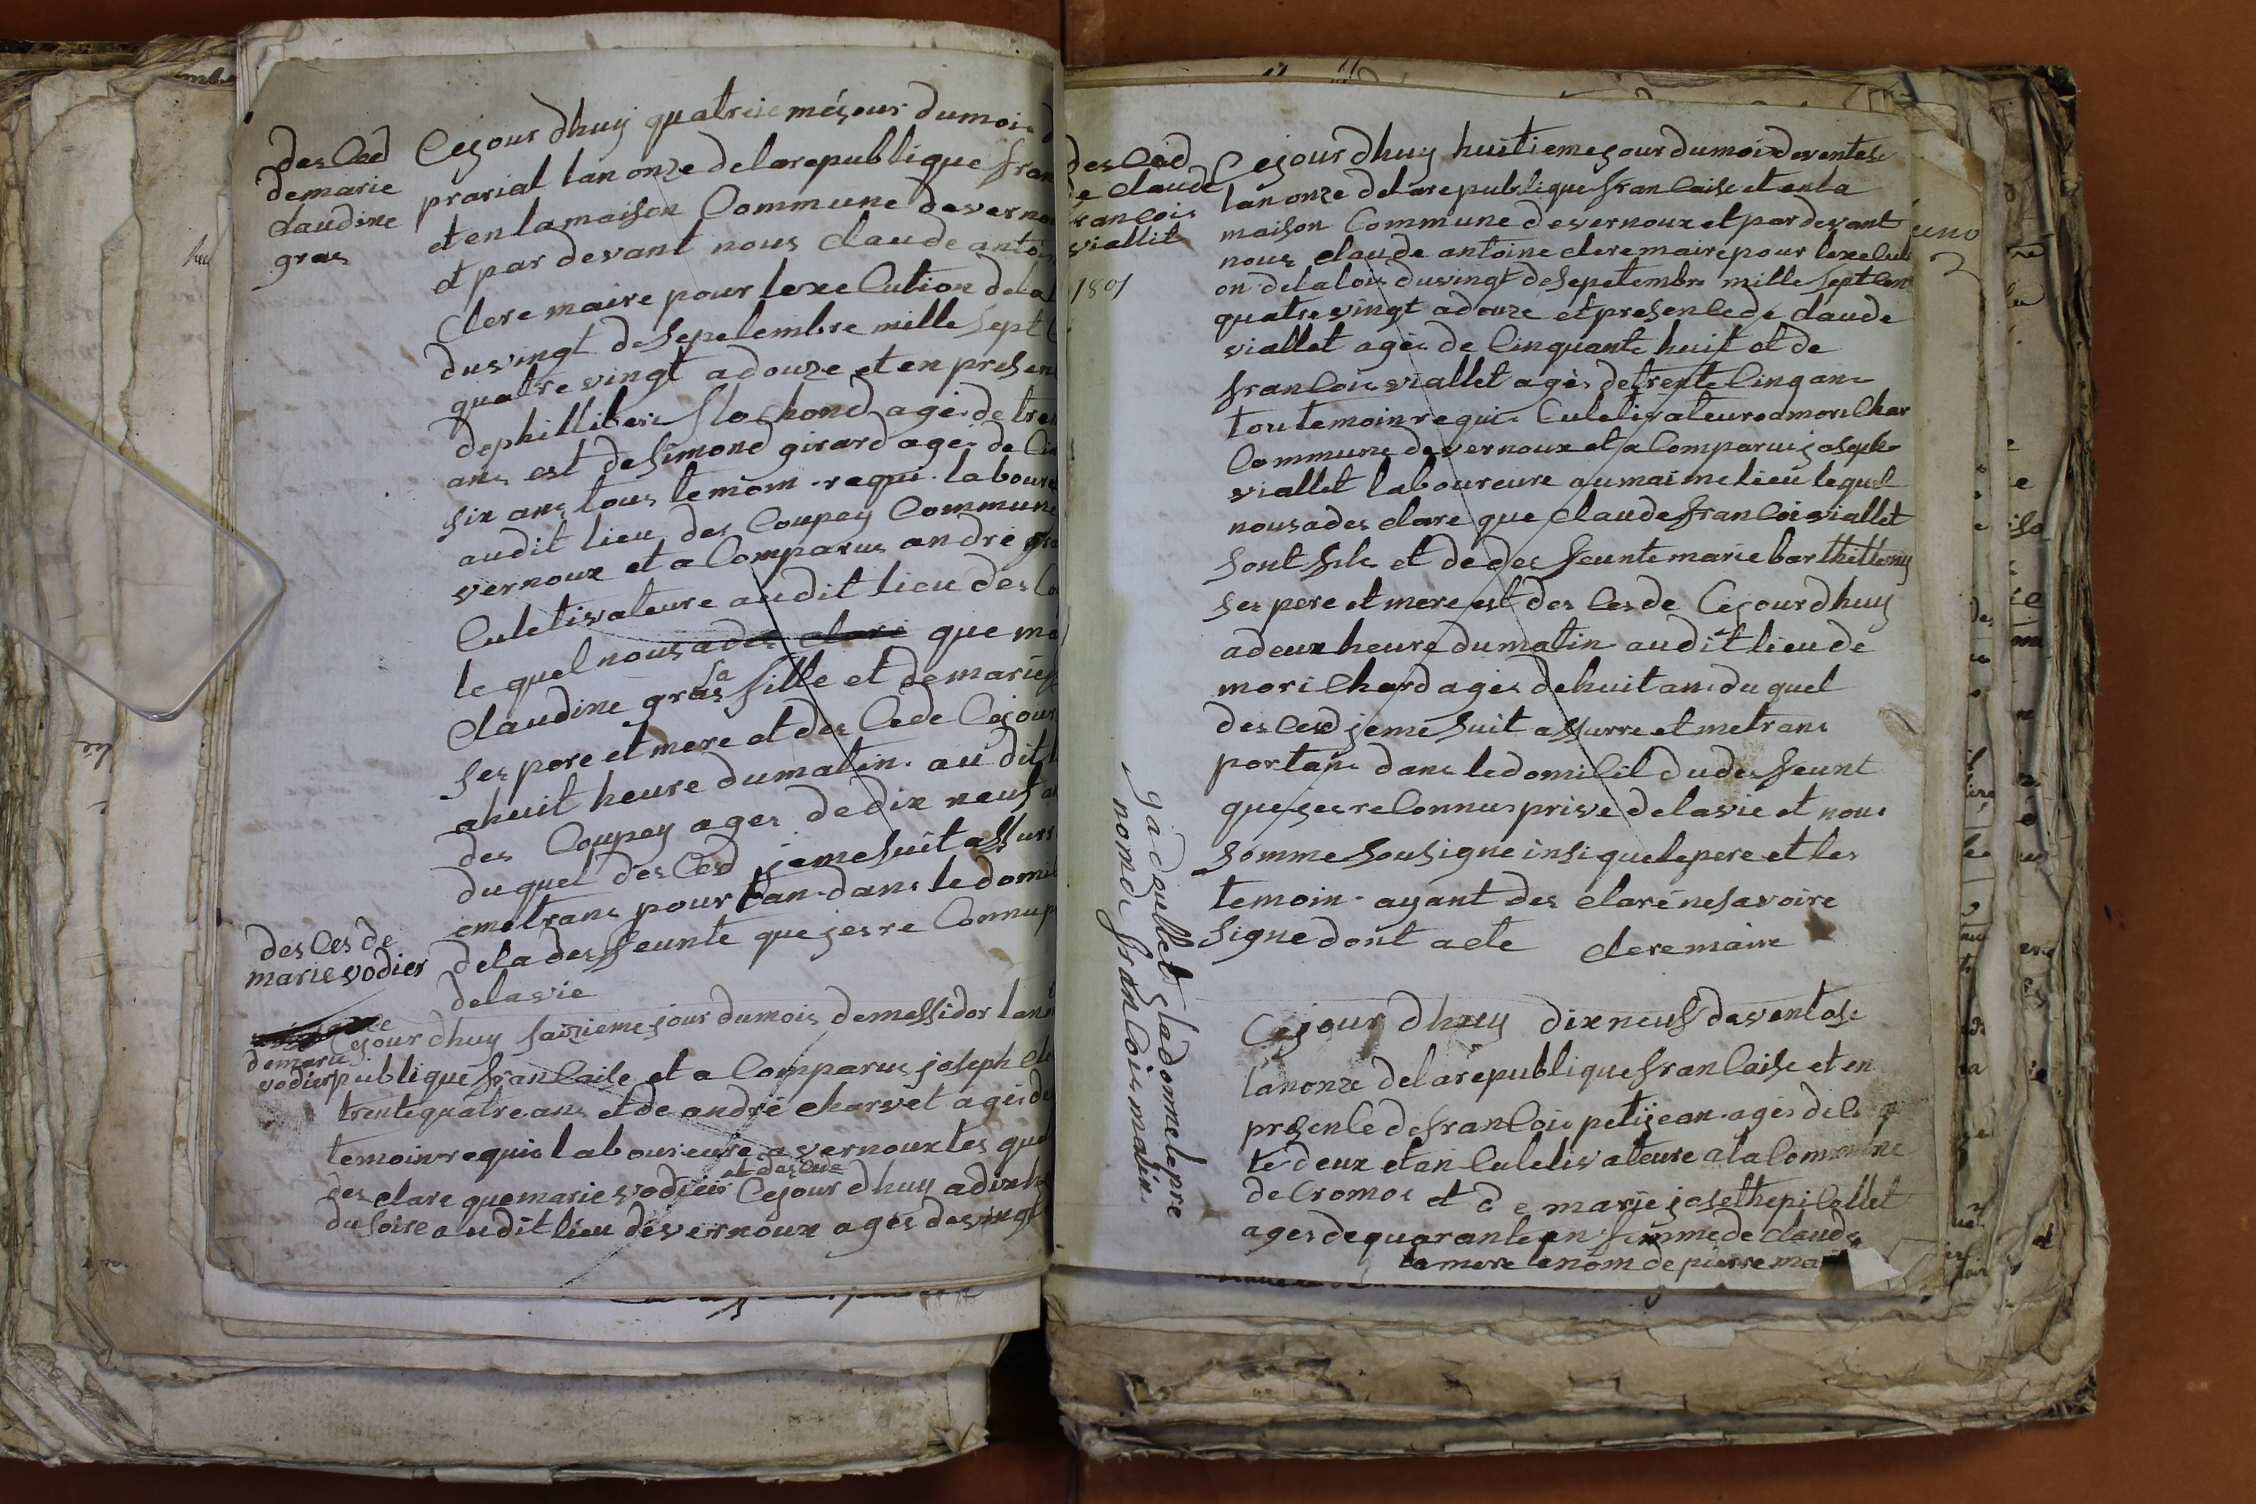 des Ced
demarie
claudine
gras
Cejour dhuy quatrieme jour dumois
prarial lan onze delarepublique fran
et en lamaison Commune devernou
et par devant nous claude antoi
clere maire pour lexecution dela
duvingt desepetembre mille sept
quatre vingt adouze et en presen
dephillibert flochond agés de tre
ans est desimond girard agés de Cin
six ans tous temoin requi laboure
audit lieu des Coupey Commune
vernoux et a Comparus andré gra
Culetivateure audit lieu des Co
le quel nous ades claré que ma
claudine gras sa fille et demarie
ses pere et mere et des Cede Cejour
ahuit heure dumatin au dit
des Coupey ages dedix neuf a
duquel des Ced jemesuit assurr
emetrans pourtan dans ledomi
dela desfeunte que jesre Connu p
delavie
des Ces de
marie vodier
demarie
vodier
Cejour dhuy saizieme jour dumois demessidor lan
publique francaise et a Comparus joseph cle
trentequatre ans et de andré charvet agés de
temoin requis laboureure a vernoux les quel
des clare quemarie vodier et des Cede Cejour dhuy adix h
dusoire audit lieu devernoux agés devingt
des Ced
de claude
francois
viallit
1801
Cejour dhuy huitieme jour dumoi deventose
lan onze delarepublique francaise et enla
maison Commune devernoux et pardevant
nous claude antoine clere maire pour lexecuti
on delalois duvingt desepetembre mille sept Cent
quatre vingt adouze et presencede claude
viallet agés de Cinquante huit et de
francois viallet agés detrente Cinq ans
toutemoin requi Culetivateure amorichar
Commune devernoux et a Comparus joseph
viallet laboureure aumaime lieu lequel
nous ades clare que claude francois viallet
sont fils et dedes feunte marie barthillemy
ses pere et mere est des Cesde Cejourdhuy
adeux heure dumatin audit lieu de
morichard agés dehuit ans du quel
des Ced jeme suit assurre et metrans
portans dans ledomicil dudesfeunt
quejesreConnus prive delavie et nous
somme sousigne insi quelepere et les
temoin ayant des claré nesavoire
signe dont acte clere maire
Cejour dhuy dix neuf deventose
lanonze delarepublique francaise et en
presencede francois petijean agés de
te deux etan Culetivateure ala Commune
de Cromos et de marie josethe picollet
ages dequarante an femme de claude
gadoullet sladonnelepre
nomde francois marie
la mere lenom de pierre mari